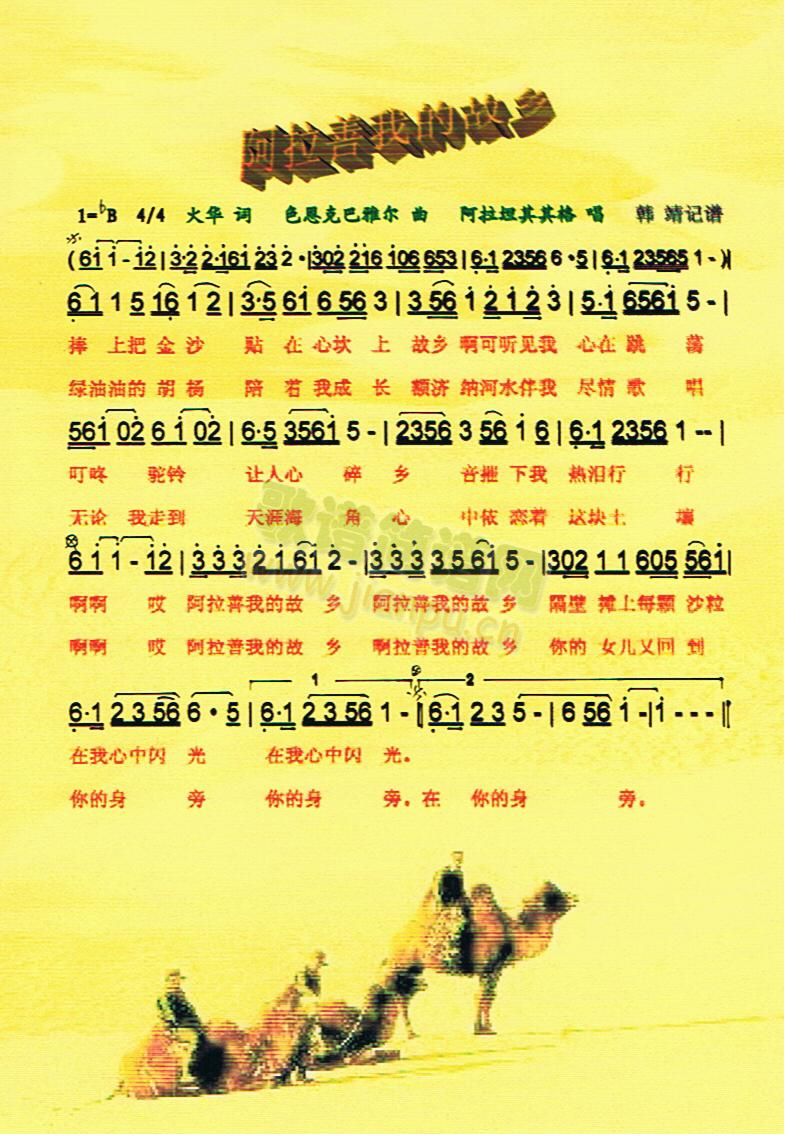 阿拉善我的故乡
1=♭B 4/4 火华 词 色恩克巴雅尔 曲 阿拉坦其其格 唱 韩 靖记谱
(6i i - i2 | 3·2 2·161 23 2· | 302 216 106 653 | 6·1 2356 6·5 | 6·1 23565 1 - )|
6 1 1 5 16 1 2 | 3·5 61 6 56 3 | 3 56 1 2 1 2 3 | 5·1 6561 5 - |
捧 上把 金 沙 贴 在 心坎 上 故乡 啊可听见我 心在 跳 荡
绿油油的 胡 杨 陪 着 我成 长 额济 纳河水伴我 尽情 歌 唱
561 02 6 1 02 | 6·5 3561 5 - | 2356 3 56 1 6 | 6·1 2356 1 -- |
叮咚 驼铃 让人心 碎 乡 音摧 下我 热泪行 行
无论 我走到 天涯海 角 心 中依 恋着 这块土 壤
6 1 1 - 12 | 3 3 3 2 1 61 2 - | 3 3 3 3 5 61 5 - | 302 1 1 605 561 |
啊啊 哎 阿拉善我的故 乡 阿拉善我的故 乡 隔壁 滩上每颗 沙粒
啊啊 哎 阿拉善我的故 乡 啊拉善我的故 乡 你的 女儿又回 到
1 2
6·1 2 3 56 6·5 | 6·1 2 3 56 1 - || 6·1 2 3 5 - | 6 56 1 - | 1 - - - ||
在我心中闪 光 在我心中闪 光。
你的身 旁 你的身 旁。在 你的身 旁。
歌谱简谱网
www.jianpu.cn